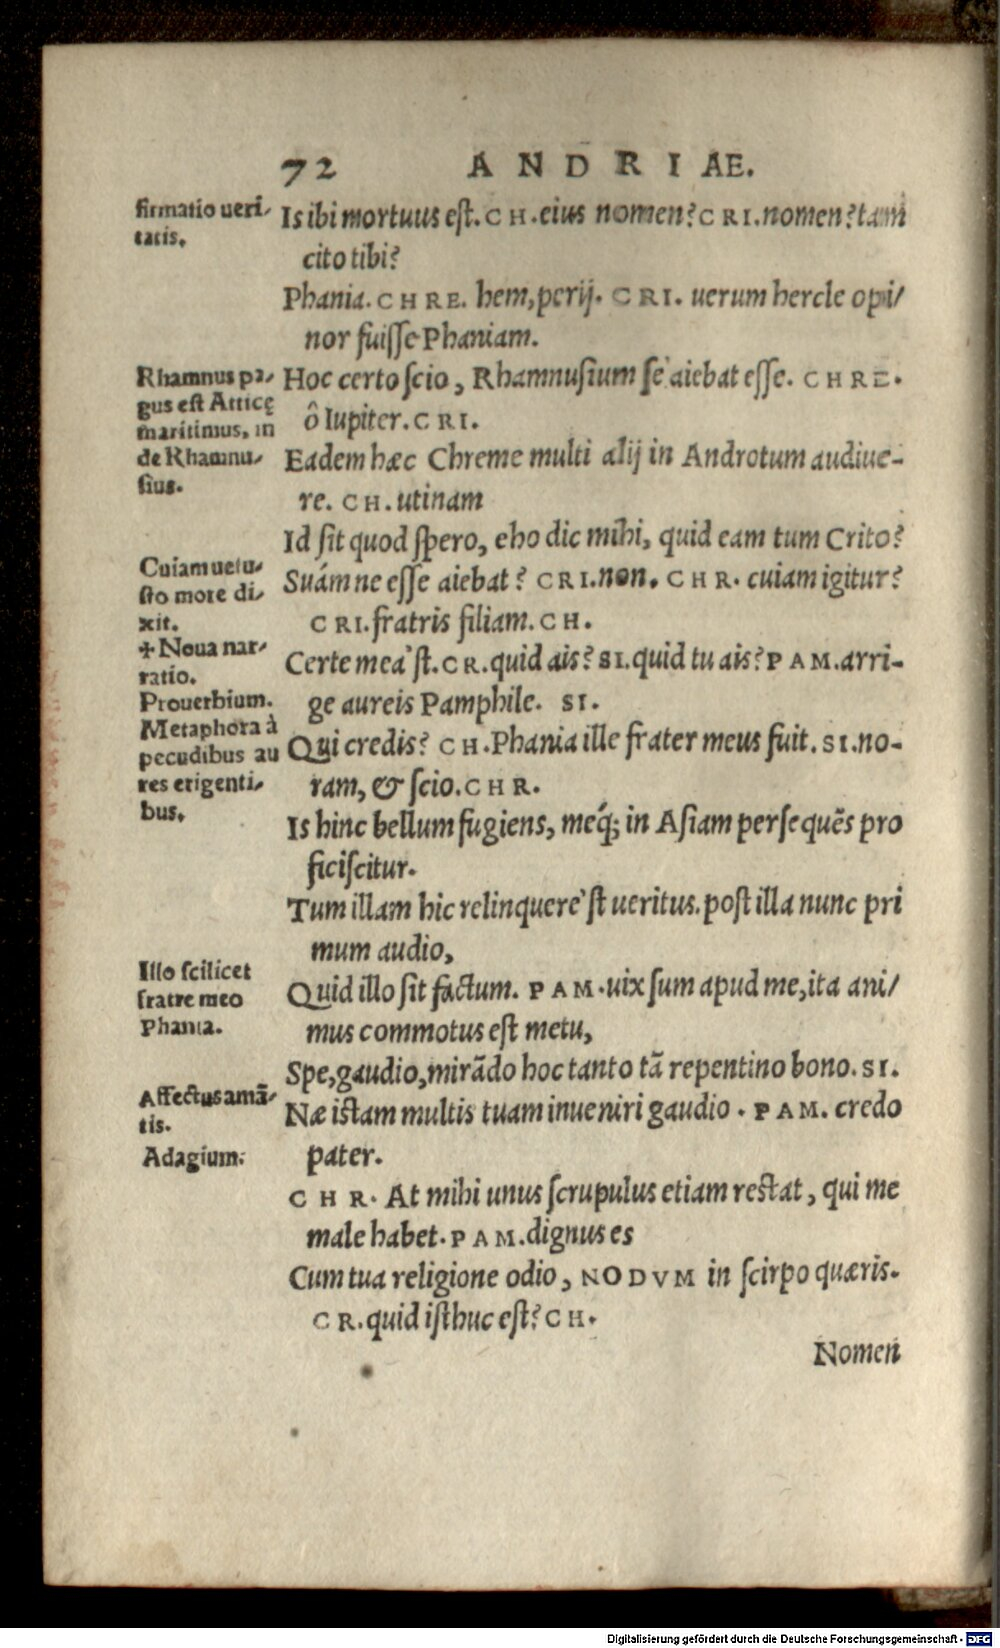 72 ANDRIAE.
firmatio ueri-
tatis.
Is ibi mortuus eſt. CH. eius nomen? CRI. nomen? tam
cito tibi?
Phania. CHRE. hem, perij. CRI. uerum hercle opi/
nor fuiſſe Phaniam.
Rhamnus pa-
gus eſt Atticę
maritimus, in
de Rhamnu-
ſius.
Hoc certo ſcio, Rhamnuſium ſe aiebat eſſe. CHRE.
ô Iupiter. CRI.
Eadem hæc Chreme multi alij in Androtum audiue-
re. CH. utinam
Id ſit quod ſpero, eho dic mihi, quid eam tum Crito?
Cuiam uetu-
ſto more di-
xit.
✢ Noua nar-
ratio.
Prouerbium.
Metaphora à
pecudibus au
res erigenti-
bus.
Suám ne eſſe aiebat? CRI. non. CHR. cuiam igitur?
CRI. fratris filiam. CH.
Certe mea'ſt. CR. quid ais? SI. quid tu ais? PAM. arri-
ge aureis Pamphile. SI.
Qui credis? CH. Phania ille frater meus fuit. SI. no-
ram, & ſcio. CHR.
Is hinc bellum fugiens, méq; in Aſiam perſequẽs pro
ficiſcitur.
Tum illam hic relinquere'ſt ueritus. poſt illa nunc pri
mum audio,
Illo ſcilicet
fratre meo
Phania.
Quid illo ſit factum. PAM. uix ſum apud me, ita ani/
mus commotus eſt metu,
Spe, gaudio, mirãdo hoc tanto tã repentino bono. SI.
Affectus amã-
tis.
Adagium.
Næ iſtam multis tuam inueniri gaudio. PAM. credo
pater.
CHR. At mihi unus ſcrupulus etiam reſtat, qui me
male habet. PAM. dignus es
Cum tua religione odio, NODVM in ſcirpo quæris.
CR. quid iſthuc eſt? CH.
Nomen
Digitalisierung gefördert durch die Deutsche Forschungsgemeinschaft - DFG